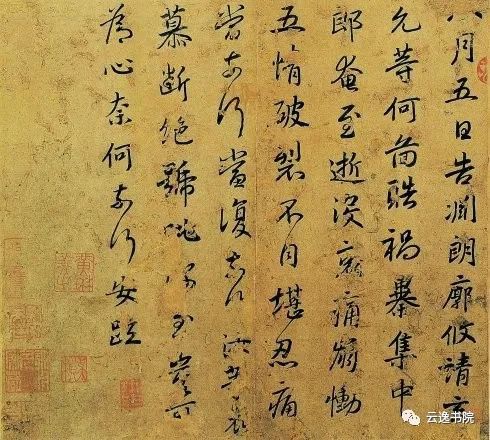 八月五日告淵朗廓攸靖玄
允等何圖酷禍暴集中
郎奄至逝沒哀痛崩慟
五情破裂不自堪忍痛
當奈何當復奈何汝等哀
慕斷絕號咷深至豈可
為心奈何奈何安疏
云逸书院